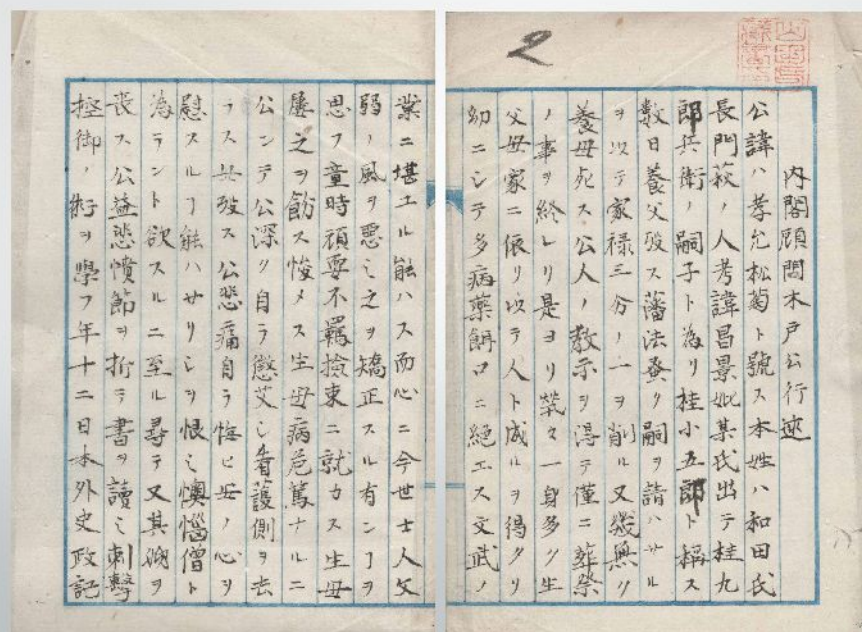 2
内閣顧問木戸公行迹
公諱ハ孝允松菊ト號ス本姓ハ和田氏
長門萩ノ人考諱昌景妣某氏出テ桂九
郎兵衛ノ嗣子ト為リ桂小五郎ト稱ス
數日養父歿ス藩法蚤ク嗣ヲ請ハサル
ヲ以テ家禄三分ノ一ヲ削ル又幾無ク
養母死ス公人ノ教示ヲ得テ僅ニ葬祭
ノ事ヲ終レリ是ヨリ煢々一身多ク生
父母家ニ依リ以テ人ト成ルヲ得タリ
幼ニシテ多病藥餌口ニ絶エス文武ノ
業ニ堪エル能ハス而心ニ今世士人文
弱ノ風ヲ悪ミ之ヲ矯正スル有ンヿヲ
思フ童時頑耍不羈撿束ニ就カス生母
屡之ヲ飭ス悛メス生母病危篤ナルニ
公ンテ公深ク自ラ懲艾シ看護側ヲ去
ラス母歿ス公悲痛自ラ悔ヒ母ノ心ヲ
慰スルヿ能ハサリシヲ恨ミ懊悩僧ト
為ラント欲スルニ至ル尋テ又其
ヲ
喪ス公益悲憤節ヲ折テ書ヲ讀ミ刺撃
控御ノ術ヲ學フ年十二日本外史政記